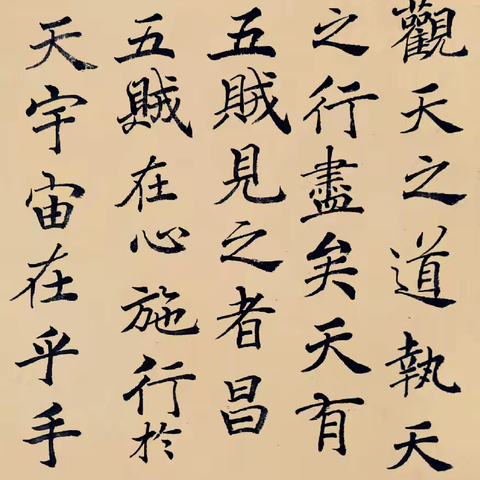 觀天之道執天
之行盡矣天有
五賊見之者昌
五賊在心施行於
天宇宙在乎手